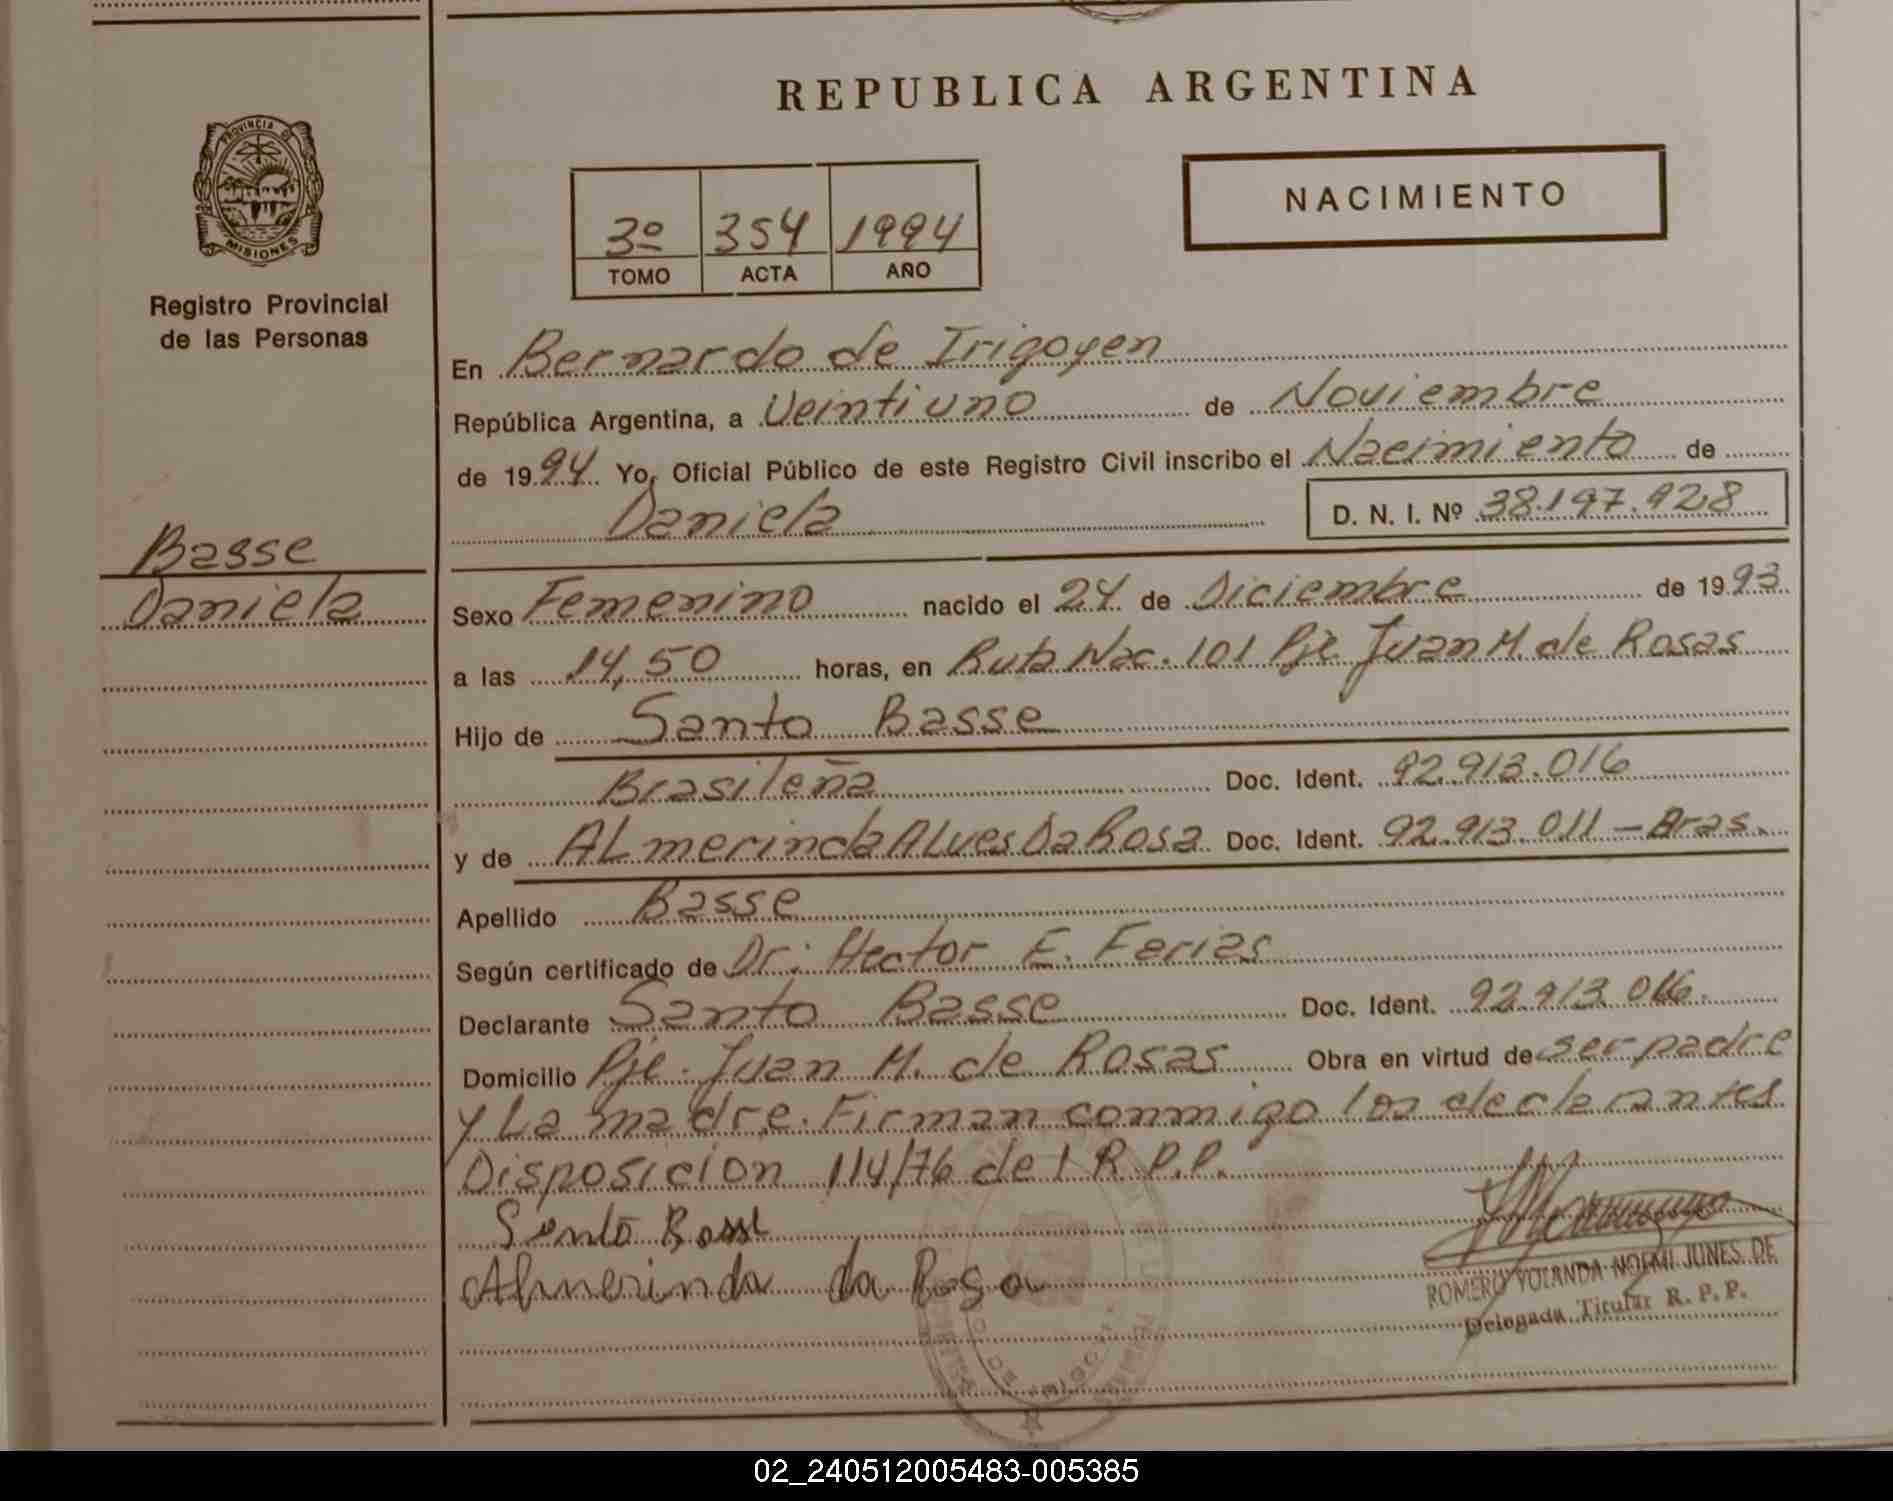 REPUBLICA ARGENTINA
PROVINCIA DE
MISIONES
Registro Provincial
de las Personas
NACIMIENTO
3º 354 1994
TOMO ACTA AÑO
En Bernardo de Irigoyen
República Argentina, a Veintiuno de Noviembre
de 1994 Yo, Oficial Público de este Registro Civil inscribo el Nacimiento de
Daniela D. N. I. Nº 38.197.928
Basse
Daniela
Sexo Femenino nacido el 24 de Diciembre de 1993
a las 14,50 horas, en Ruta Nac. 101 Pje Juan M. de Rosas
Hijo de Santo Basse
Brasileña Doc. Ident. 92.913.016
y de ALmerinda ALves Da Rosa Doc. Ident. 92.913.011 - Bras.
Apellido Basse
Según certificado de Dr: Hector E. Farias
Declarante Santo Basse Doc. Ident. 92.913.016.
Domicilio Pje. Juan M. de Rosas Obra en virtud de ser padre
y La madre. Firman conmigo los declarantes
Disposicion 114/76 del R.P.P.
Santo Basse
Almerinda da Rosa
ROMERO YOLANDA NOEMI JUNES DE
Delegada Titular R. P. P.
02_240512005483-005385